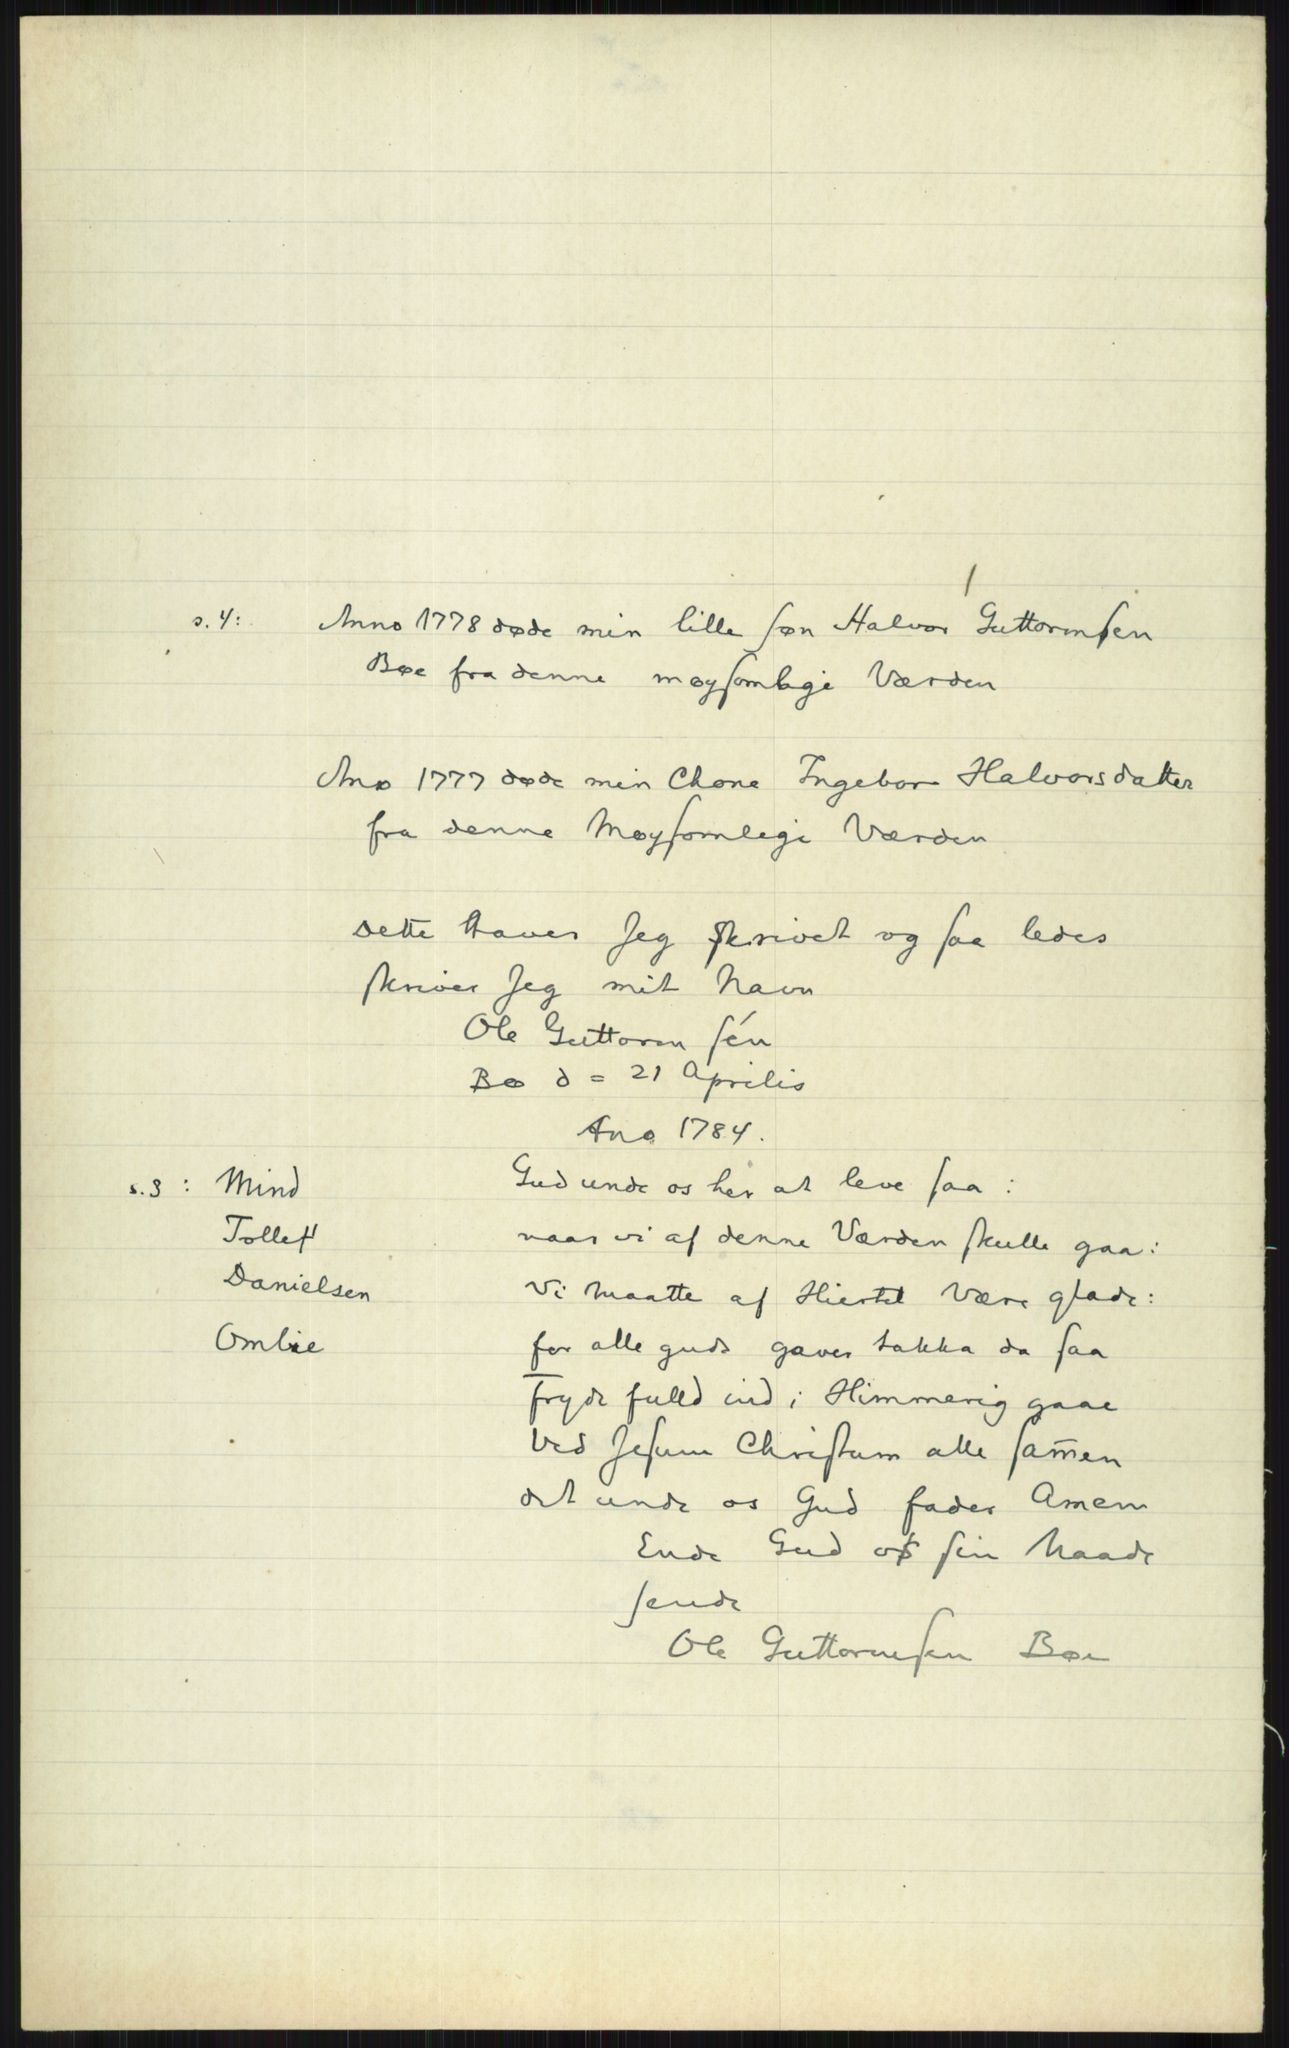 s. 4: Anno 1778 døde min lille søn Halvor Guttormsen
Bøe fra denne møysomlige Værden
Ano 1777 døde min Chone Ingebor Halvorsdatter
fra denne Møysomlege Værden
Dette haver Jeg skrivet og saa ledes
skriver Jeg mit Navn
Ole Guttorm sén
Bø d = 21 Aprilis
Ano 1784.
s. 3: Mind
Tollef
Danielsen
Omlie
Gud unde os her at leve saa:
naar vi af denne Værden skulle gaa:
Vi Maatte af Hiertet Være glade:
for alle guds gaver takka da saa
Fryde fulld ind i Himmerig gaae
Ved Jesum Christum alle sam̄en
det unde os Gud fader Amen
Ende Gud os sin Naade
sende
Ole Guttormsen Bøe